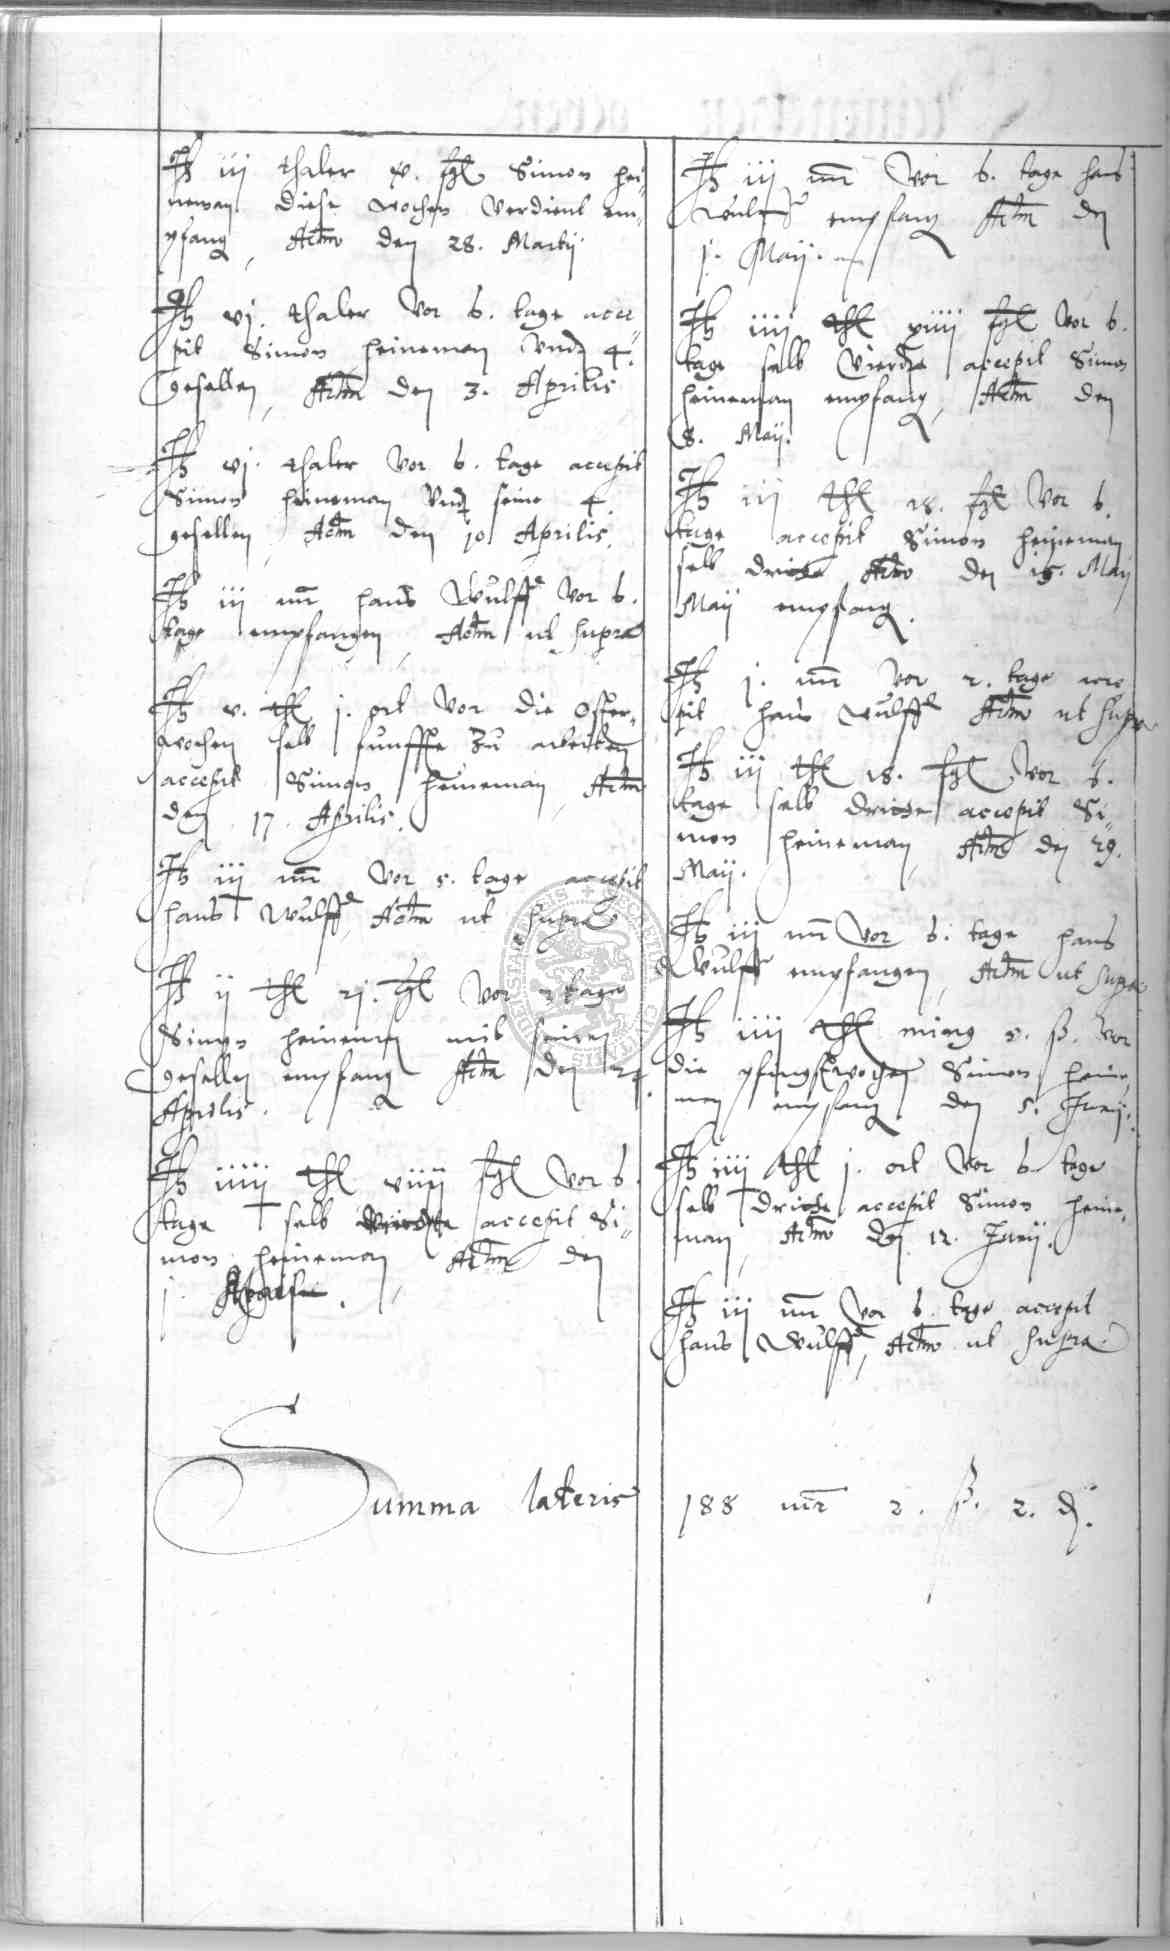 It iij thaler xv. ßl Simon hei-
neman diese wochen verdient em-
pfang, Actum den 28. Martij
It vj. thaler vor 6. tage acce-
pit Simon heineman vnd 4.
gesellen, Actum den 3. Aprilis
It vj. thaler vor 6. tage accepit
Simon heineman vnd seine 4.
gesellen, Actum den 10 Aprilis.
It iij mr hans Wulff vor 6.
tage empfangen, Actum ut supra
It v. thl j. ort vor die Oster-
wochen selb funffte zu arbeiten
accepit Simon heineman, Actum
den 17. Aprilis.
It iij mr vor 5. tage accepit
hans Wulff, Actum ut supra
It ij thl 21. ßl vor 3 tage
Simon heineman mit seinen
gesellen empfang Actum den 24.
Aprilis.
It iiij thl viiij ßl vor 6.
tage selb vierdte accepit Si-
mon heineman, Actum den
j.
It iij mr vor 6. tage hans
Wulff empfang Actum den
j. Maij.
It iiij thl xiiij ßl vor 6.
tage selb vierdte accepit Simon
heineman empfang, Actum den
8. Maij.
It iij thl 18. ßl vor 6.
tage accepit Simon heineman
selb dritte Actum den 15. Maij
Maij empfang.
It j. mr vor 2. tage acce-
pit hans Wulff Actum ut supra
It iij thl 18. ßl vor 6.
tage selb dritte accepit Si-
mon heineman, Actum den 29.
Maij.
It iij mr vor 6. tage hans
Wulff empfangen, Actum ut supra
It iiij thl minq 5. ß. vor
die pfingstwochen Simon heine-
man empfang den 5. Junij.
It iiij thl j. ort vor 6 tage
selb dritte accepit Simon heine-
man, Actum den 12. Junij.
It iij mr vor 6. tage accepit
hans Wulff, Actum ut supra
Summa lateris 188 mr 2. ß. 2. d.